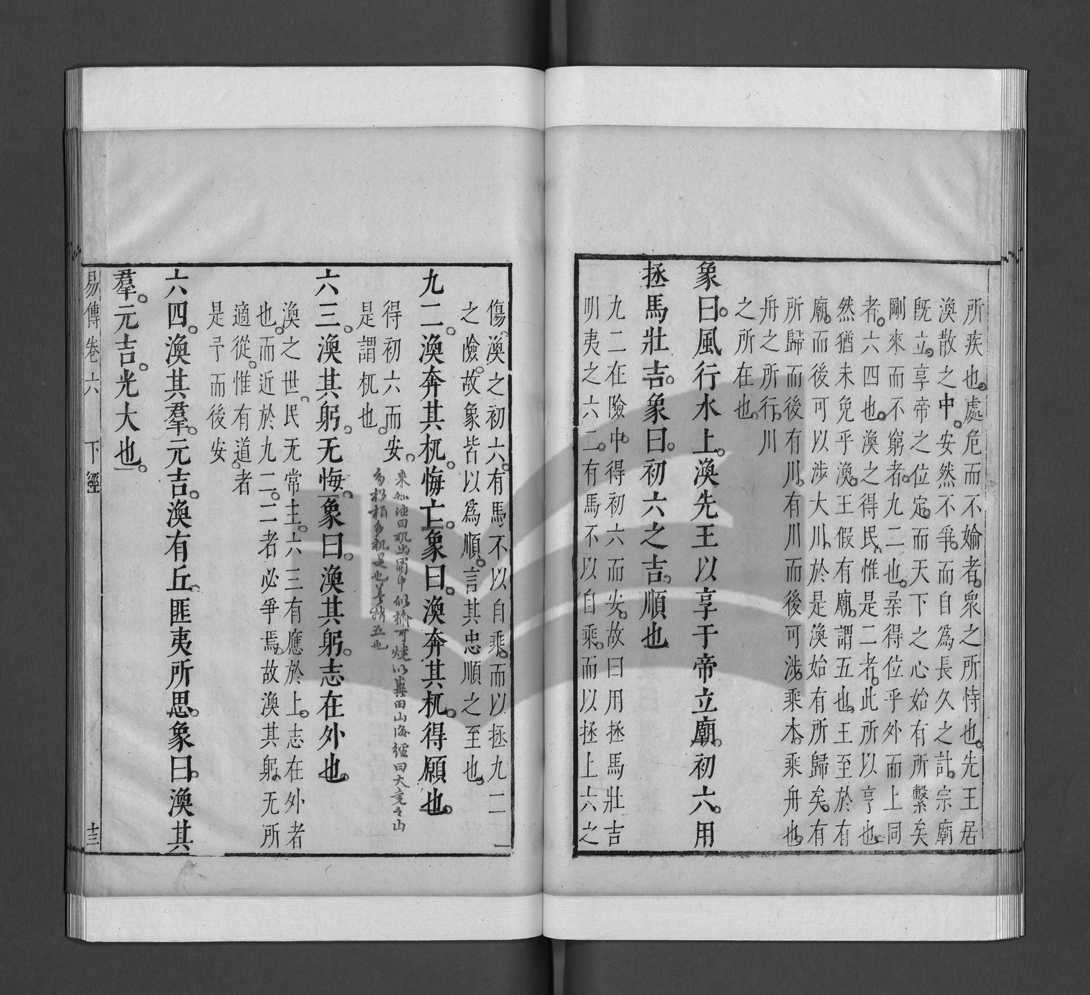 所疾也處危而不媮者衆之所恃也先王居
渙散之中安然不爭而自爲長久之計宗廟
旣立享帝之位定而天下之心始有所繫矣
剛來而不窮者九二也柔得位乎外而上同
者六四也渙之得民惟是二者此所以亨也
然猶未免乎渙王假有廟謂五也王至於有
廟而後可以涉大川於是渙始有所歸矣有
所歸而後有川有川而後可涉乘木乘舟也
舟之所行川
之所在也
象曰風行水上渙先王以享于帝立廟初六用
拯馬壯吉象曰初六之吉順也
九二在險中得初六而安故曰用拯馬壯吉
明夷之六二有馬不以自乘而以拯上六之
傷渙之初六有馬不以自乘而以拯九二
之險故象皆以爲順言其忠順之至也
九二渙奔其机悔亡象曰渙奔其机得願也
得初六而安
是謂机也
六三渙其躬无悔象曰渙其躬志在外也
渙之世民无常主六三有應於上志在外者
也而近於九二二者必爭焉故渙其躬无所
適從惟有道者
是予而後安
六四渙其羣元吉渙有丘匪夷所思象曰渙其
羣元吉光大也
易傳卷六
下經
十三